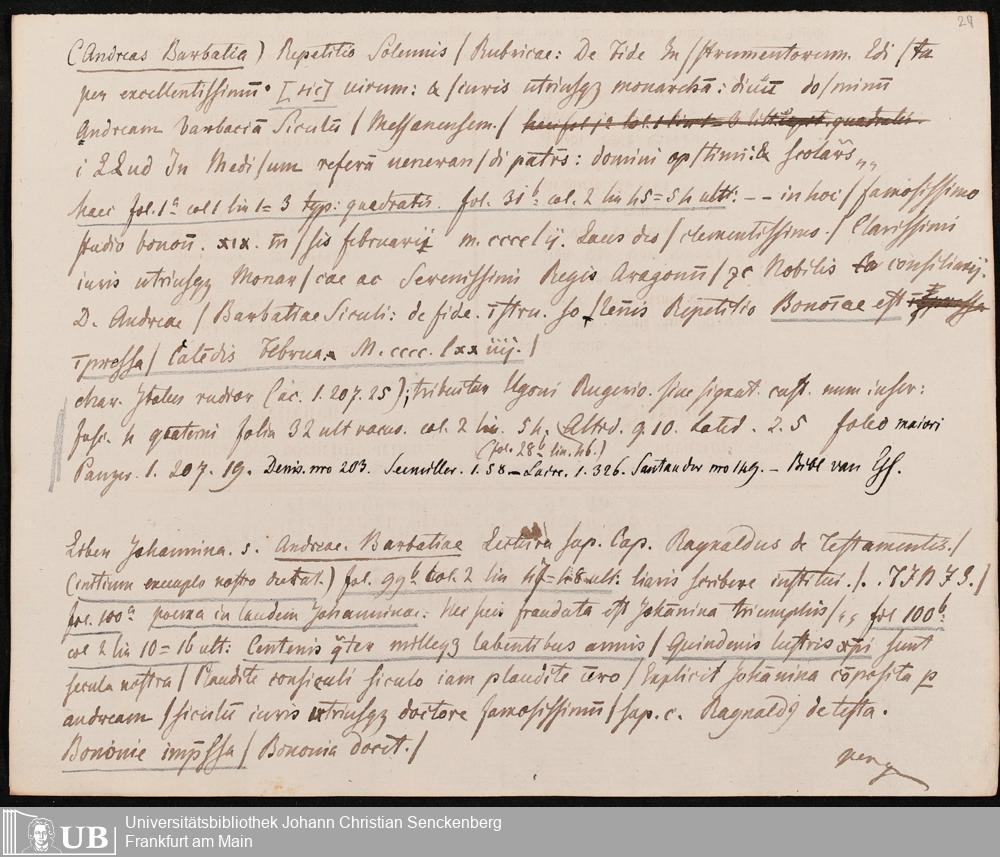 28
(Andreas Barbatia) Repetitio Solennis / Rubricae: De Fide In/strumentorum. Edi/ta
per excellentissimū. [sic] uirum: & iuris utriusqꝫ monarchā: diuū do/minū
Andream Barbaciā Siculū / Messanensem./
i LLud In Medi/um referā ueneran/di patrs: domini op/timi: & scolars„„
haec fol. 1ᵃ col 1 lin 1=3 typ: quadratis. fol. 31ᵇ: col. 2 lin 45=54 ult: -- in hoc / famosissimo
studio bonoñ. xix. m̄/sis februarij m. cccc lij. Laus deo / clementissimo./ Clarissimi
iuris utriusqꝫ Monar/cae ac Serenissimi Regis Aragonū / ⁊c Nobilis consiliarij.
D. Andreae / Barbatiae Siculi: de fide. īstru. so/lēnis Repetitio Bononiae est
īpressa / Calēdis Februa. M. cccc. lxxiiij. /
char. Italus rudior (ac. 1. 207. 25); tribuitur Ugoni Rugerio. sine signat. cust. num. inser:
fasc. 4 quaterni folia 32 ult vacus. col. 2 lin. 54. Altid. 9. 10. Latid. 2. 5 folio maiori
(fol. 28ᵇ lin. 46.)
Panzer. 1. 207. 19. Denis. nro 203. Seemiller. 1. 58 – Laire. 1. 326. Santander nro 149. – Bibl van Eß.
Liber Johannina. s. Andreae. Barbatiae Lectura sup. Cap. Raynaldus de Testamentis./
(initium exemplo nostro deerat.) fol. 99ᵇ col. 2 lin 47=48 ult: liaris scribere institui./. . F I N I S./
fol. 100ᵃ poema in laudem Johanninae: Hei hei fraudata est Johānina triumphis/„ „ fol 100ᵇ.
col 2 lin 10=16 ult: Centenis q̄ter milleqꝫ labentibus annis / Quindenis lustris xp̄i sunt
secula nostra / Plaudite consiculi siculo iam plaudite uero / Explicit Johānina cōposita p
andream / siculū iuris utriusqꝫ doctore famosissimū / sup. c. Raynaldꝰ de testa.
Bononie imp̄ssa / Bononia docet./
verg
Universitätsbibliothek Johann Christian Senckenberg
Frankfurt am Main
UB